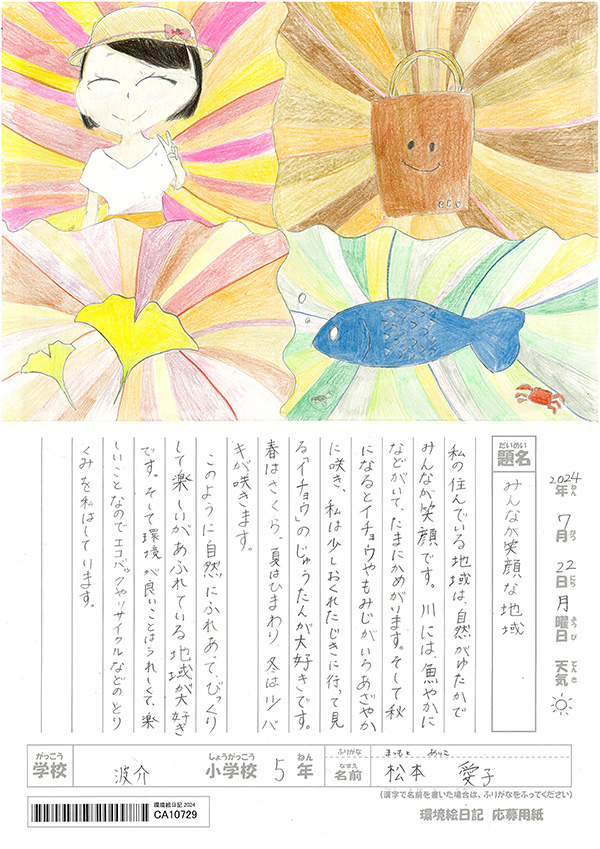 eco
2024年 7月 22日 月曜日 天気
ねん がつ にち ようび てんき
だいめい
題名
みんなが笑顔な地域
私の住んでいる地域は、自然がゆたかで
みんなが笑顔です。川には、魚やかに
などがいて、たまにかめがいます。そして秋
になるとイチョウやもみじがいろあざやか
に咲き、私は少しおくれたじきに行って見
る「イチョウ」のじゅうたんが大好きです。
春はさくら、夏はひまわり、冬はツバ
キが咲きます。
このように自然にふれあって、びっくり
して楽しいがあふれている地域が大好き
です。そして環境が良いことはうれしくて、楽
しいことなのでエコバックやリサイクルなどのとり
くみを私はしてります。
がっこう しょうがっこう ねん ふりがな まつもと あいこ
学校 波介 小学校 5年 なまえ 名前 松本 愛子
(漢字で名前を書いた場合は、ふりがなをふってください)
環境絵日記 2024
CA10729
環境絵日記 応募用紙